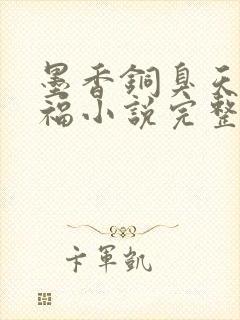 墨香銅臭天
福小說完整
卞軍凱